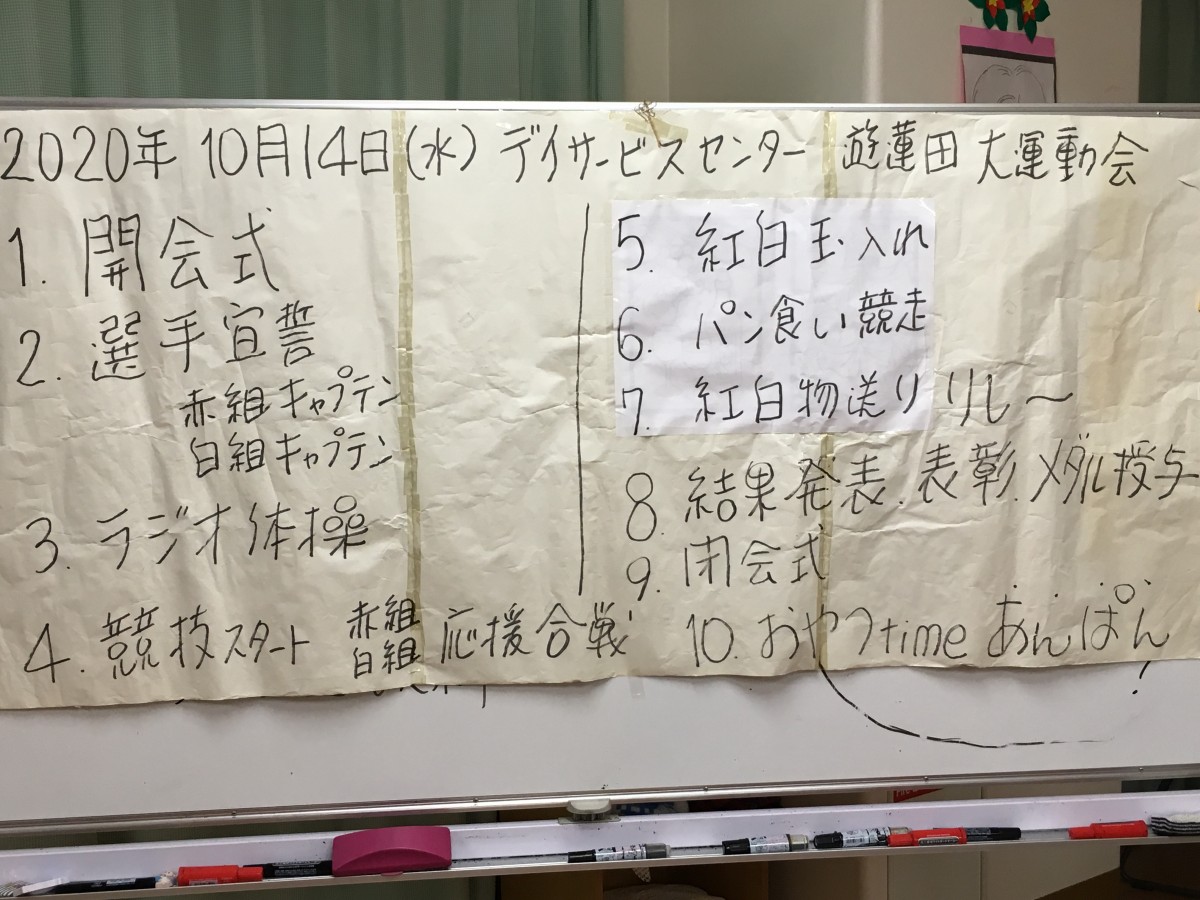 2020年 10月14日(水) デイサービスセンター 遊蓮田 大運動会
1. 開会式
2. 選手宣誓
赤組キャプテン
白組キャプテン
3. ラジオ体操
4. 競技スタート 赤組 白組 応援合戦
5. 紅白玉入れ
6. パン食い競走
7. 紅白物送りリレー
8. 結果発表、表彰、メダル授与
9. 閉会式
10. おやつtime あんぱん!